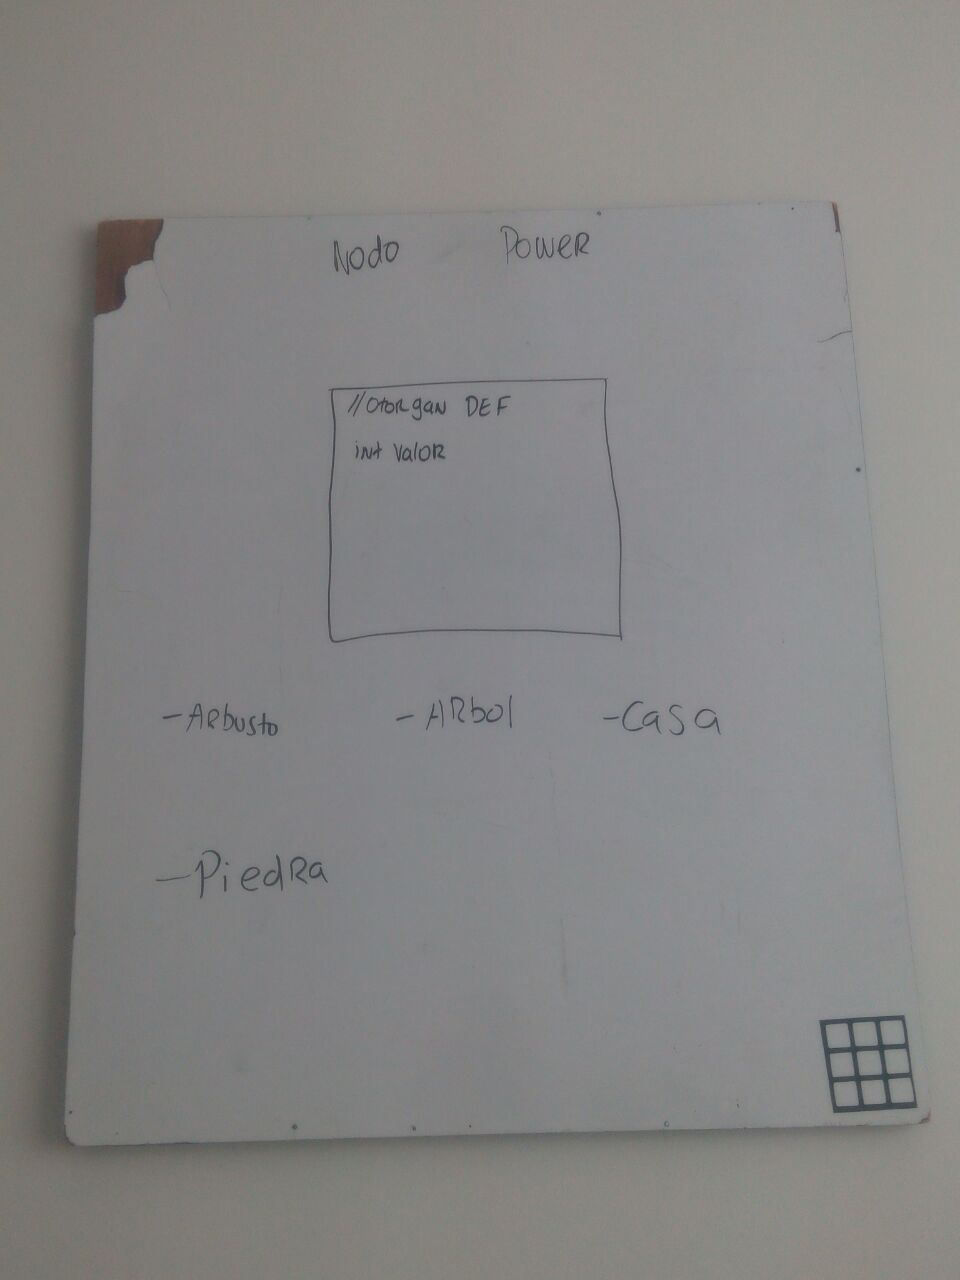 Nodo Power
//Otorgan DEF
int valor
-Arbusto -Arbol -Casa
-Piedra